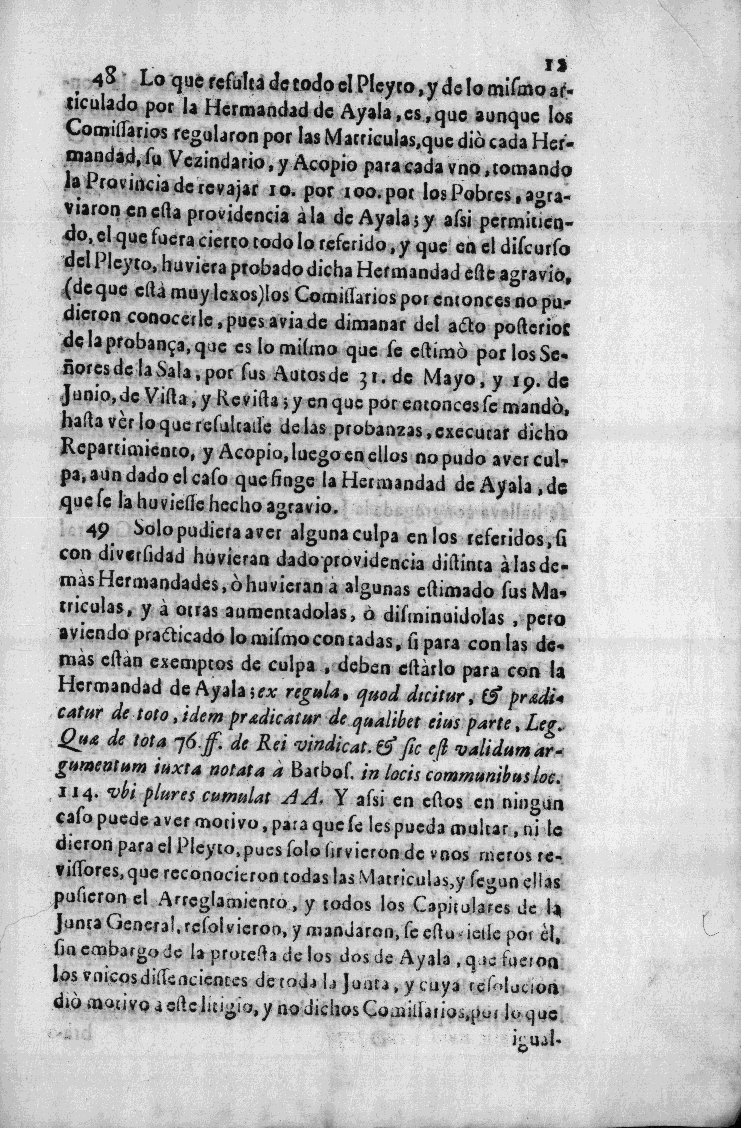 12
48 Lo que reſulta de todo el Pleyto, y de lo miſmo ar-
ticulado por la Hermandad de Ayala, es, que aunque los
Comiſſarios regularon por las Matriculas, que diò cada Her-
mandad, ſu Vezindario, y Acopio para cada vno, tomando
la Provincia de revajar 10. por 100. por los Pobres, agra-
viaron en eſta providencia à la de Ayala; y aſsi permitien-
do, el que fuera cierto todo lo referido, y que en el diſcurſo
del Pleyto, huviera probado dicha Hermandad eſte agravio,
(de que eſtà muy lexos) los Comiſſarios por entonces no pu-
dieron conocerle, pues avia de dimanar del acto poſterior
de la probança, que es lo miſmo que ſe eſtimò por los Se-
ñores de la Sala, por ſus Autos de 31. de Mayo, y 19. de
Junio, de Viſta, y Reviſta; y en que por entonces ſe mandò,
haſta vèr lo que reſultaſſe de las probanzas, executar dicho
Repartimiento, y Acopio, luego en ellos no pudo aver cul-
pa, aun dado el caſo que finge la Hermandad de Ayala, de
que ſe la huvieſſe hecho agravio.
49 Solo pudiera aver alguna culpa en los referidos, ſi
con diverſidad huvieran dado providencia diſtinta à las de-
màs Hermandades, ò huvieran à algunas eſtimado ſus Ma-
triculas, y à otras aumentadolas, ò diſminuidolas, pero
aviendo practicado lo miſmo con todas, ſi para con las de-
màs eſtàn exemptos de culpa, deben eſtàrlo para con la
Hermandad de Ayala; ex regula, quod dicitur, & prædi-
catur de toto, idem prædicatur de qualibet eius parte, Leg.
Quæ de tota 76. ff. de Rei vindicat. & ſic eſt validum ar-
gumentum iuxta notata à Barboſ. in locis communibus loc.
114. vbi plures cumulat AA. Y aſsi en eſtos en ningun
caſo puede aver motivo, para que ſe les pueda multar, ni le
dieron para el Pleyto, pues ſolo ſirvieron de vnos meros re-
viſſores, que reconocieron todas las Matriculas, y ſegun ellas
puſieron el Arreglamiento, y todos los Capitulares de la
Junta General, reſolvieron, y mandaron, ſe eſtuvieſſe por èl,
ſin embargo de la proteſta de los dos de Ayala, que fueron
los vnicos diſſencientes de toda la Junta, y cuya reſolucion
diò motivo a eſte litigio, y no dichos Comiſſarios, por lo que
igual-